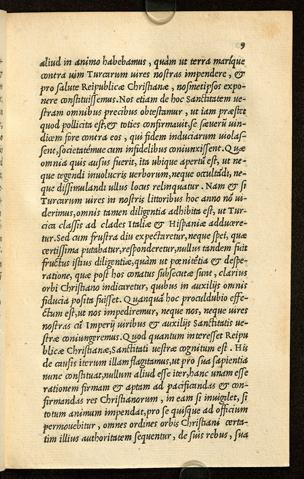 9
aliud in animo habebamus, quàm ut terra maríque
contra uim Turcarum uires nostras impendere, &
pro salute Reipublicæ Christianæ, nosmetipsos expo
nere constituissemus. Nos etiam de hoc Sanctitatem ue-
stram omnibus precibus obtestamur, ut iam præstet
quod pollicita est, & toties confirmauit. se sæuerū uin-
dicem fore contra eos, qui fidem induciarum uiolas-
sent, societatémue cum infidelibus coniunxissent. Quæ
omnia quis ausus fuerit, ita ubique apertū est, ut ne-
que tegendi inuolucris uerborum, neque occultādi, ne-
que dissimulandi ullus locus relinquatur. Nam & si
Turcarum uires in nostris littoribus hoc anno nō ui-
derimus, omnis tamen diligentia adhibita est, ut Tur-
cica classis ad clades Italiæ & Hispaniæ adducere-
tur. Sed cum frustra diu expectaretur, neque spei, quæ
certissima putabatur, responderetur, nullus tandem fuit
fructus istius diligentiæ, quàm ut pœnitētia & despe-
ratione, quæ post hos conatus subsecutæ sunt, clarius
orbi Christiano indicaretur, quibus in auxilijs omnis
fiducia posita fuisset. Quanquā hoc proculdubio effe-
ctum est, ut nos impediremur, neque nos, neque uires
nostras cū Imperij uiribus & auxilijs Sanctitatis ue-
stræ coniungeremus. Quod quantum interesset Reipu
blicæ Christianæ, Sanctitati uestræ cognitum est. His
de causis iterum illam flagitamus, ut pro sua sapientia
nunc constituat, nullum aliud esse iter, hanc unam esse
rationem firmam & aptam ad pacificandas & con-
firmandas res Christianorum, in eam si inuigilet, si
totum animum impendat, pro se quisque ad officium
permouebitur, omnes ordines orbis Christiani certa-
tim illius authoritatem sequentur, de suis rebus, sua